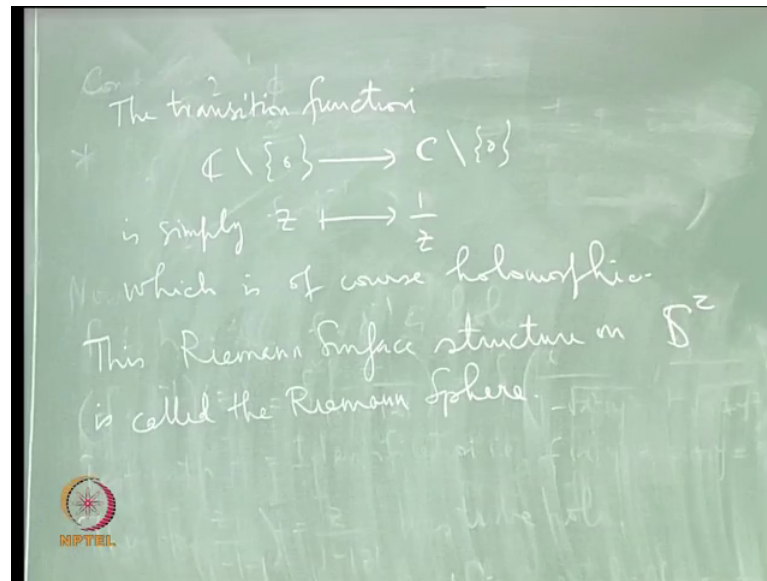 The transition function
* ℂ \ {0} ⟶ ℂ \ {0}
is simply z ⟼ 1/z
which is of course holomorphic.
This Riemann Surface structure on S²
is called the Riemann Sphere.
NPTEL